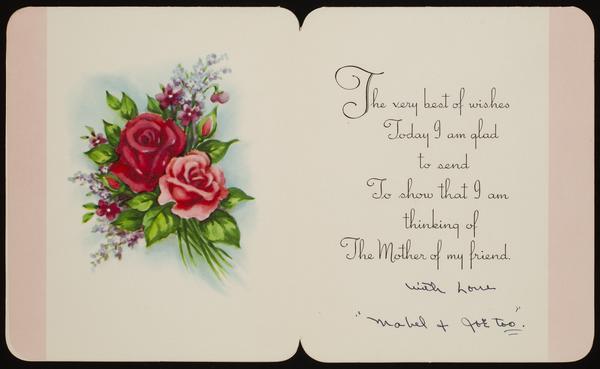 The very best of wishes
Today I am glad
to send
To show that I am
thinking of
The Mother of my friend.
with Love
"Mabel + Joe too".